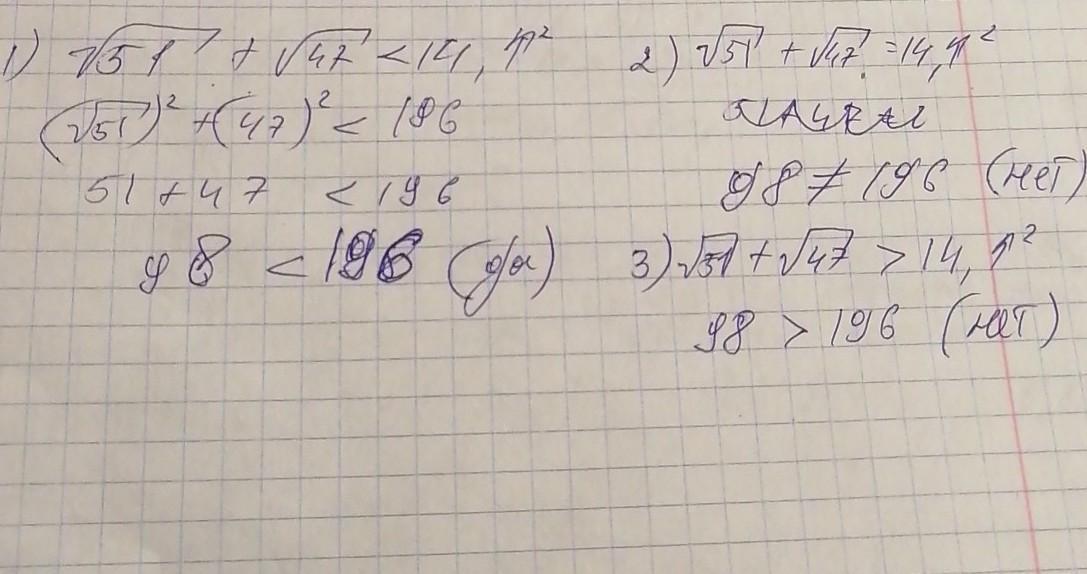 1) √51 + √47 < 14, ↑²
(√51)² + (47)² < 196
51 + 47 < 196
98 < 196 (да)
2) √51 + √47 = 14, ↑²
98 ≠ 196 (нет)
3) √51 + √47 > 14, ↑²
98 > 196 (нет)